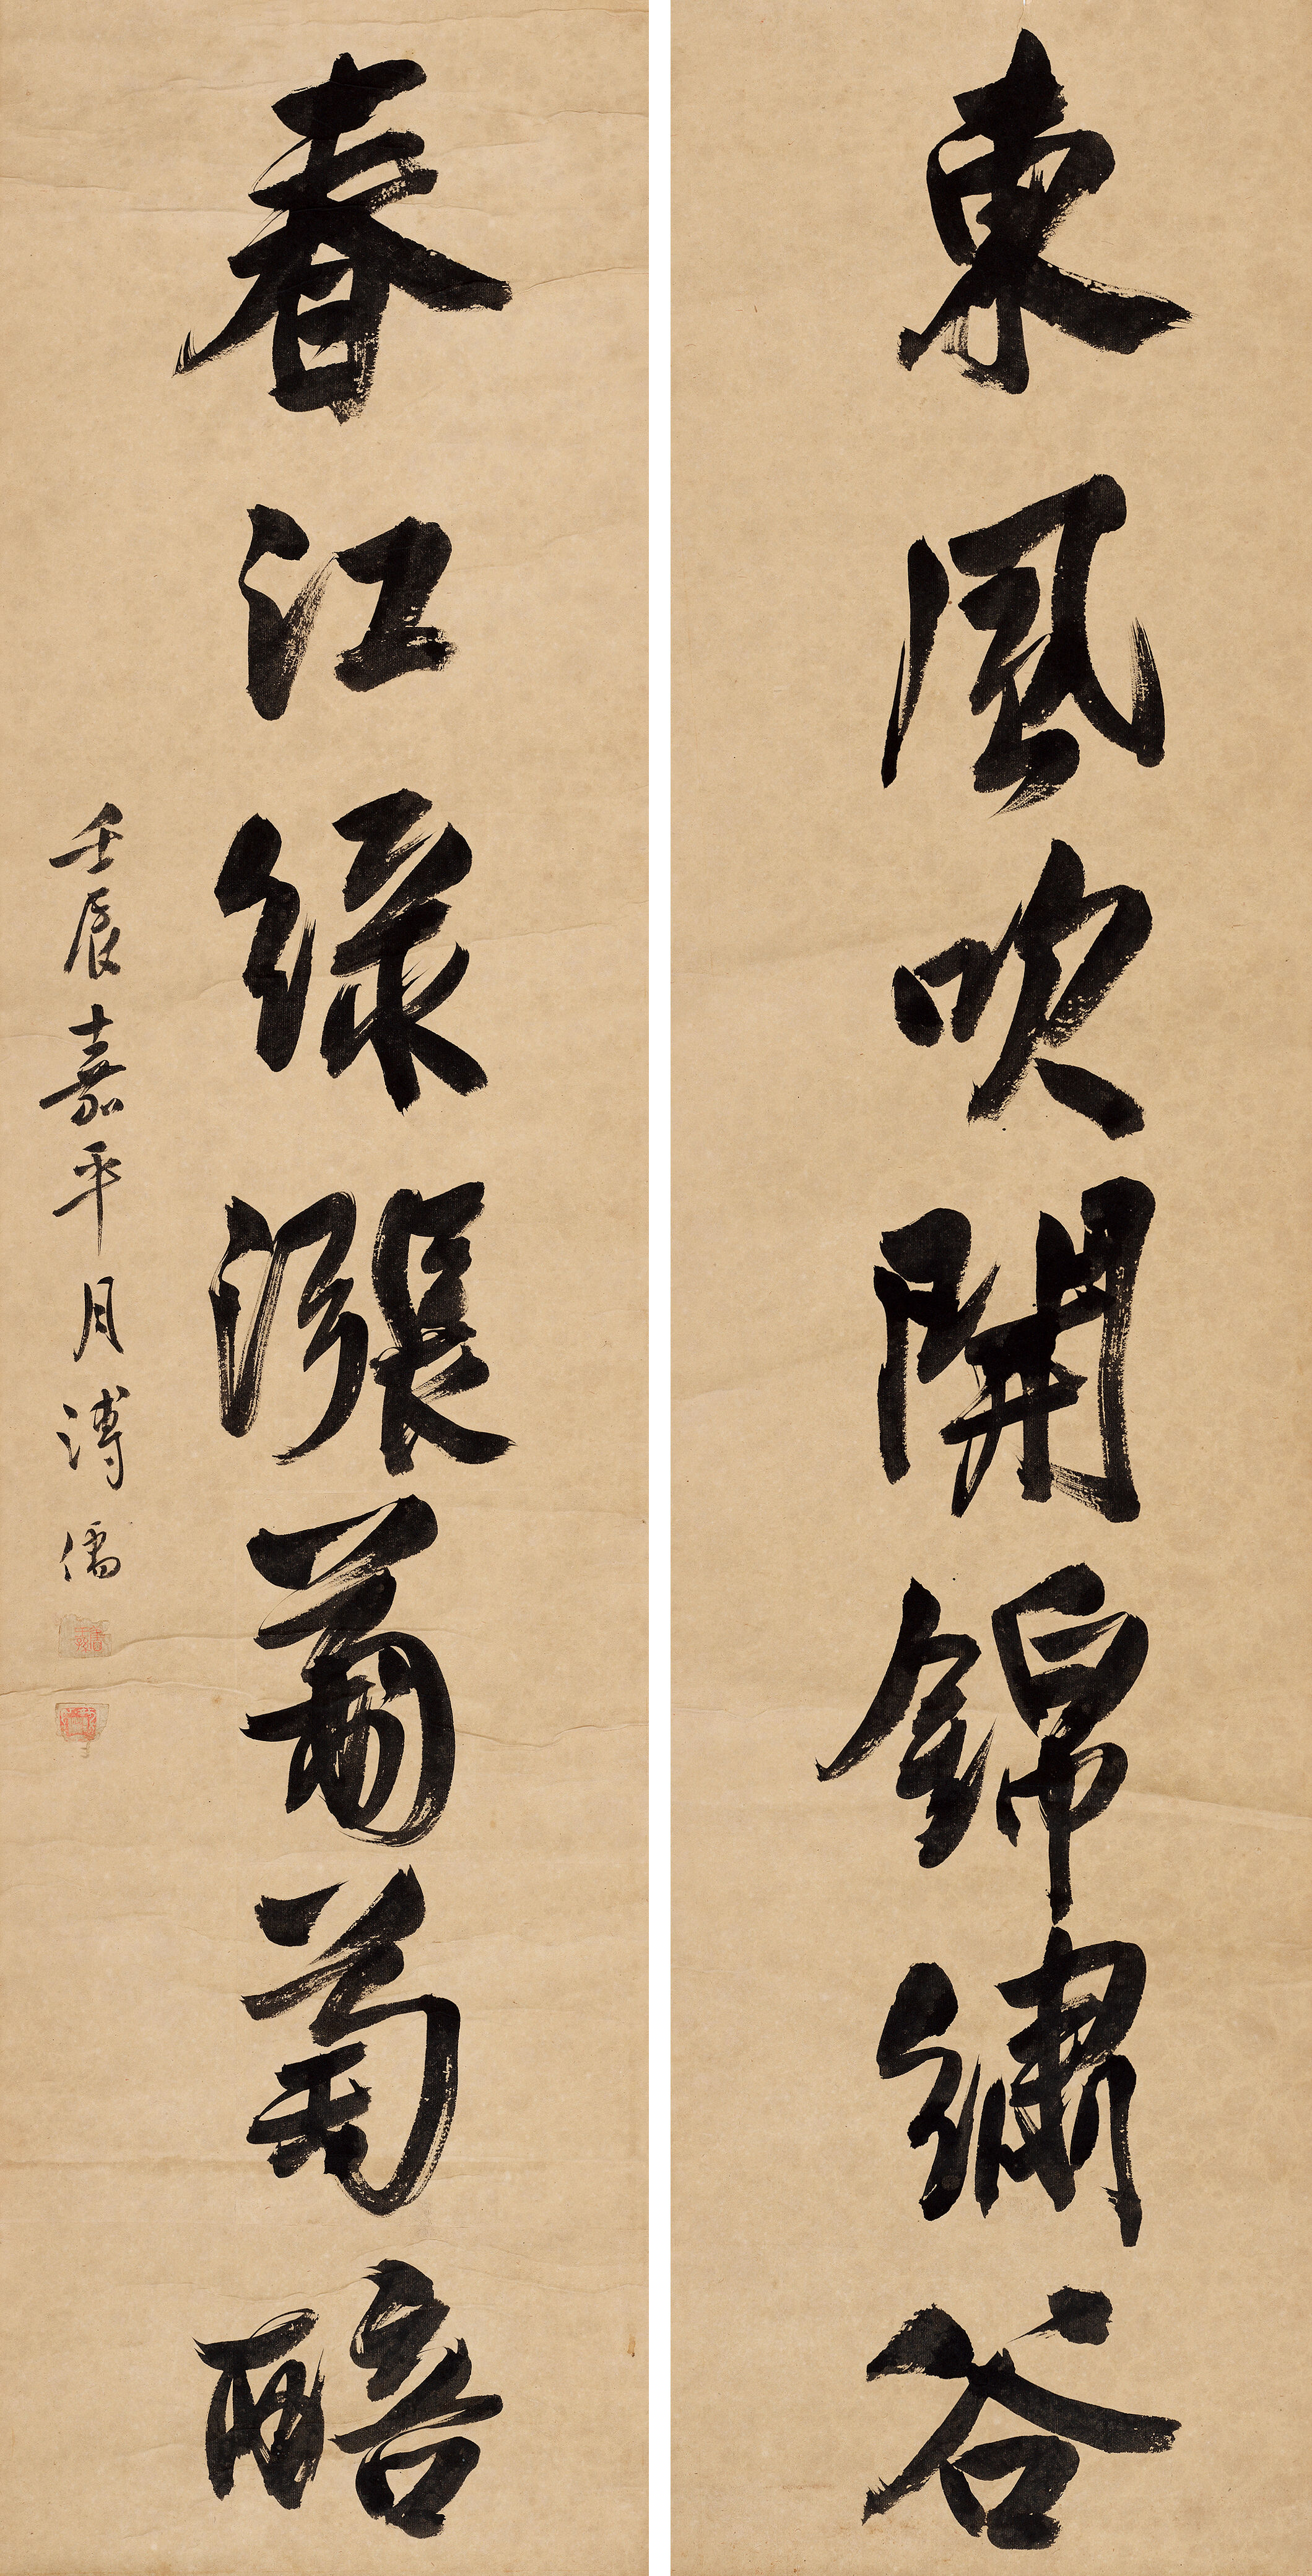 東風吹開錦繡谷
春江綠漲葡萄醅
壬辰嘉平月溥儒